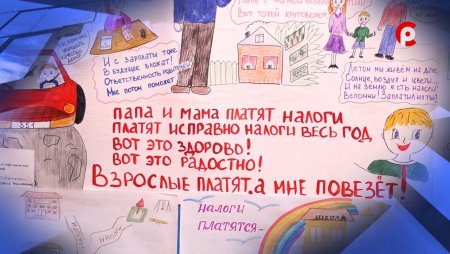 Вот такой круговорот
И с зарплаты тоже
В будущее вложат!
Ответственность родителей
Мне потом поможет
Летом мы живём на даче,
Солнце, воздух и цветы...
И на землю есть налоги
Вспомни! Заплатил их ты?
ПАПА И МАМА ПЛАТЯТ НАЛОГИ
ПЛАТЯТ ИСПРАВНО НАЛОГИ ВЕСЬ ГОД
ВОТ ЭТО ЗДОРОВО!
ВОТ ЭТО РАДОСТНО!
ВЗРОСЛЫЕ ПЛАТЯТ, А МНЕ ПОВЕЗЁТ!
НАЛОГИ
ПЛАТЯТСЯ-
ШКОЛА